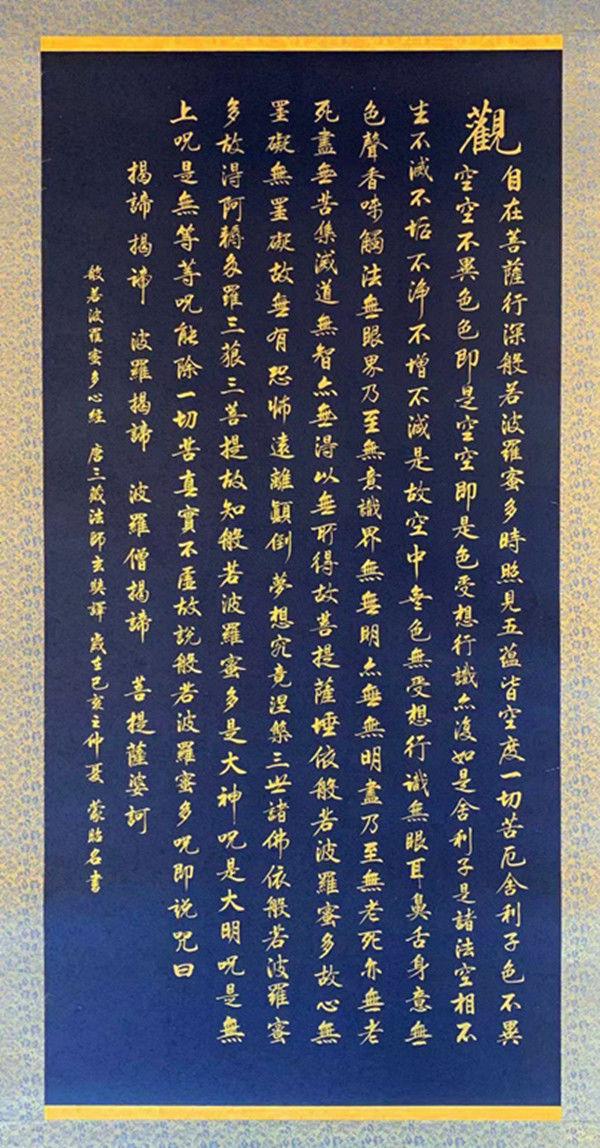 觀自在菩薩行深般若波羅蜜多時照見五蘊皆空度一切苦厄舍利子色不異
空空不異色色即是空空即是色受想行識亦復如是舍利子是諸法空相不
生不滅不垢不淨不增不減是故空中無色無受想行識無眼耳鼻舌身意無
色聲香味觸法無眼界乃至無意識界無無明亦無無明盡乃至無老死亦無老
死盡無苦集滅道無智亦無得以無所得故菩提薩埵依般若波羅蜜多故心無
罣礙無罣礙故無有恐怖遠離顛倒夢想究竟涅槃三世諸佛依般若波羅蜜
多故得阿耨多羅三藐三菩提故知般若波羅蜜多是大神咒是大明咒是無
上咒是無等等咒能除一切苦真實不虛故說般若波羅蜜多咒即說咒曰
揭諦 揭諦 波羅揭諦 波羅僧揭諦 菩提薩婆訶
般若波羅蜜多心經 唐三藏法師玄奘譯 歲在己亥之仲夏 蒙貽名書